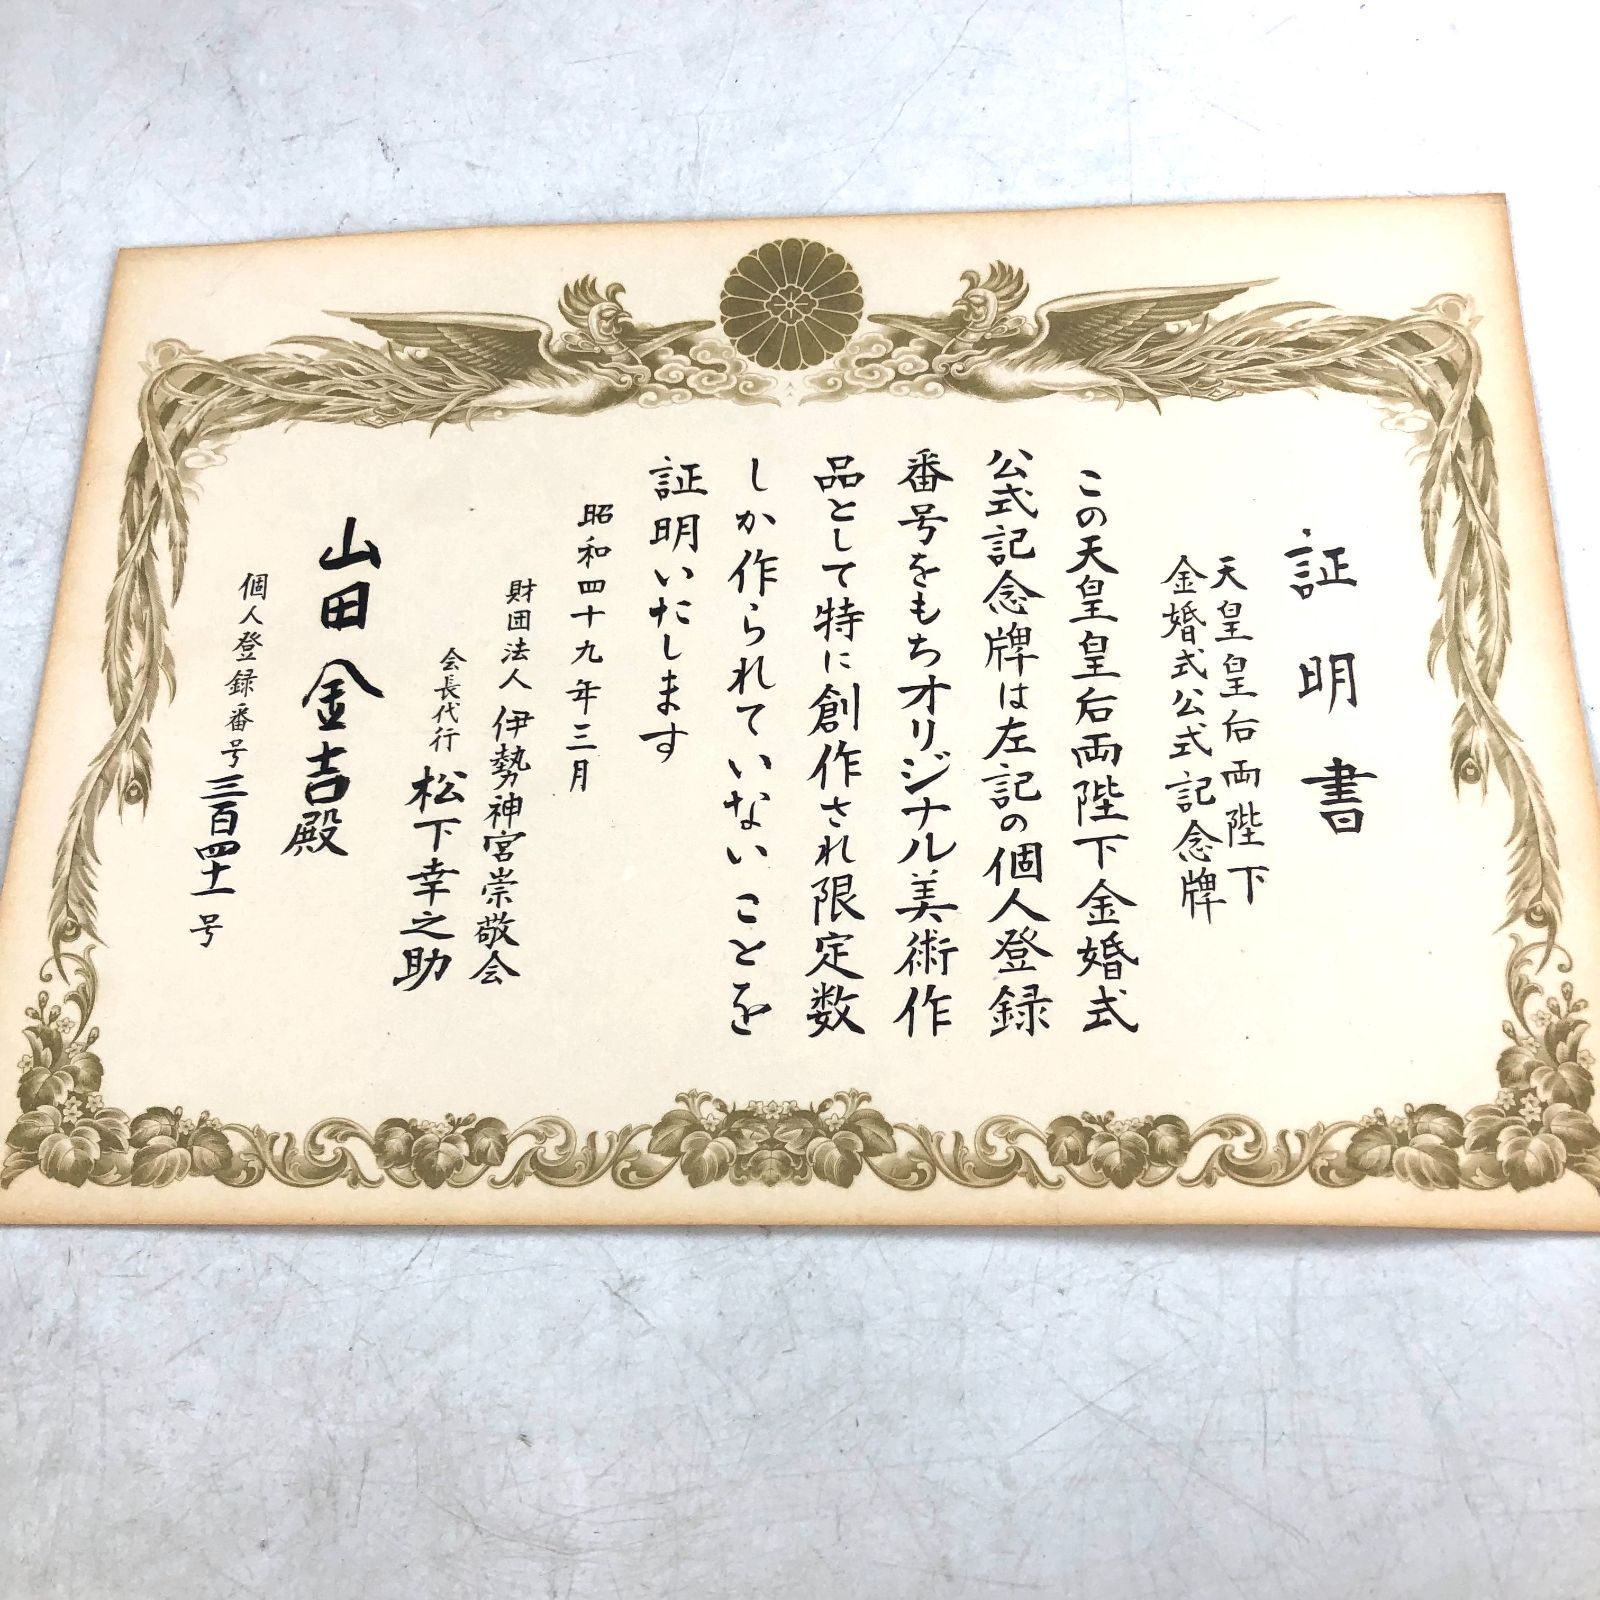 証明書
天皇皇后両陛下
金婚式公式記念牌
この天皇皇后両陛下金婚式
公式記念牌は左記の個人登録
番号をもちオリジナル美術作
品として特に創作され限定数
しか作られていないことを
証明いたします
昭和四十九年三月
財団法人 伊勢神宮崇敬会
会長代行 松下幸之助
山田金吉殿
個人登録番号三百四十一号